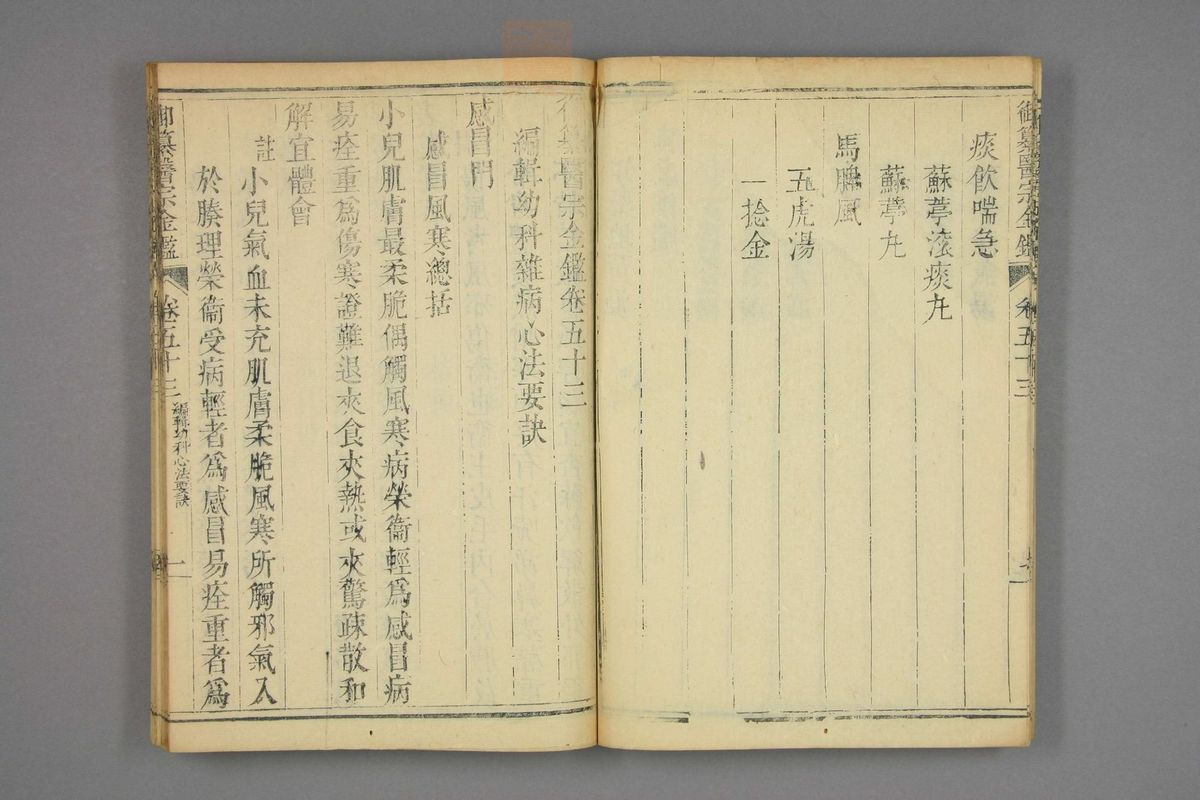 御纂醫宗金鑑
卷五十三
痰飲喘急
蘇葶滚痰丸
蘇葶丸
馬脾風
五虎湯
一捻金
御纂醫宗金鑑卷五十三
編輯幼科雜病心法要訣
感冒門
感冒風寒總括
小兒肌膚最柔脆偶觸風寒病榮衞輕爲感冒病
易痊重爲傷寒證難退夾食夾熱或夾驚疎散和
解宜體會
註
小兒氣血未充肌膚柔脆風寒所觸邪氣入
於腠理榮衞受病輕者爲感冒易痊重者爲
御纂醫宗金鑑
卷五十三
編輯幼科心法要訣
一